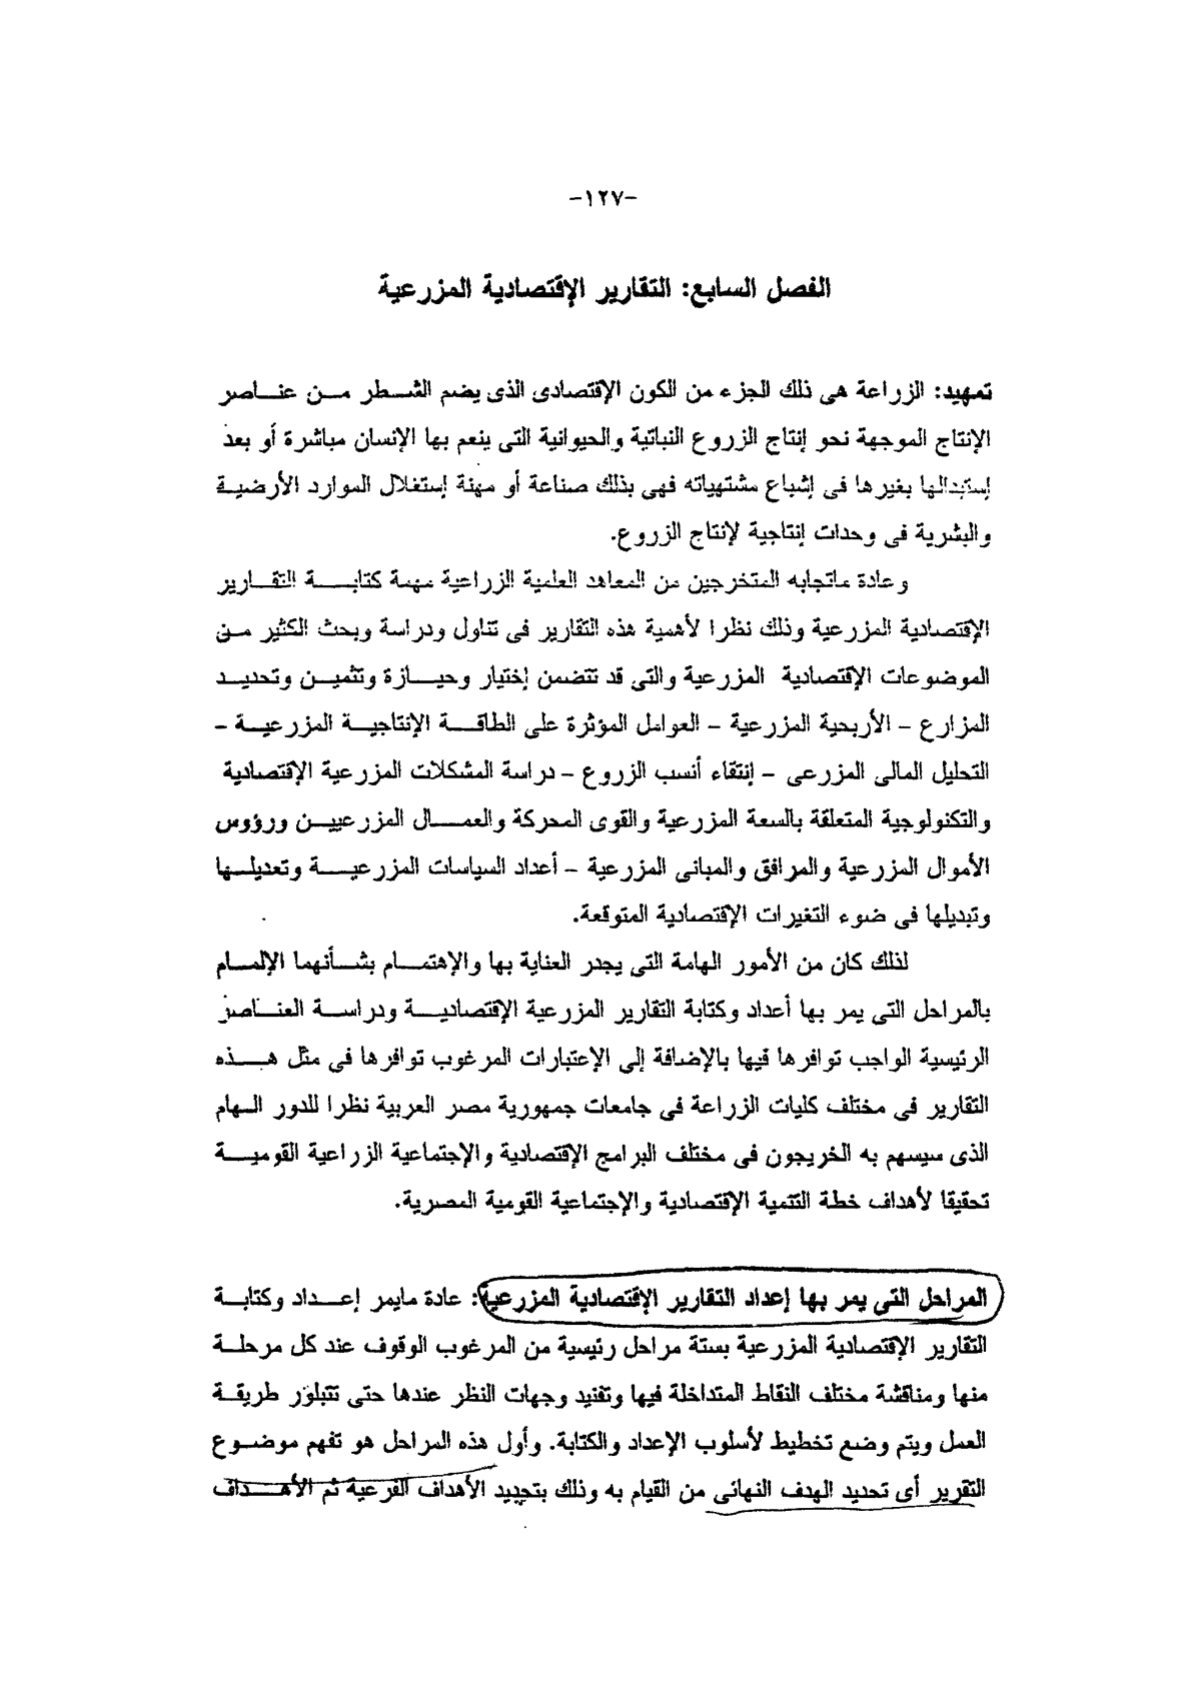 -١٢٧-
الفصل السابع: التقارير الإقتصادية المزرعية
تمهيد: الزراعة هى ذلك الجزء من الكون الإقتصادى الذى يضم الشطر من عناصر
الإنتاج الموجهة نحو إنتاج الزروع النباتية والحيوانية التى ينعم بها الإنسان مباشرة أو بعد
إستبدالها بغيرها فى إشباع مشتهياته فهى بذلك صناعة أو مهنة إستغلال الموارد الأرضية
والبشرية فى وحدات إنتاجية لإنتاج الزروع.
وعادة ماتجابه المتخرجين من المعاهد العلمية الزراعية مهمة كتابة التقارير
الإقتصادية المزرعية وذلك نظرا لأهمية هذه التقارير فى تناول ودراسة وبحث الكثير من
الموضوعات الإقتصادية المزرعية والتى قد تتضمن إختيار وحيازة وتثمين وتحديد
المزارع – الأربحية المزرعية – العوامل المؤثرة على الطاقة الإنتاجية المزرعية –
التحليل المالى المزرعى – إنتقاء أنسب الزروع – دراسة المشكلات المزرعية الإقتصادية
والتكنولوجية المتعلقة بالسعة المزرعية والقوى المحركة والعمال المزرعيين ورؤوس
الأموال المزرعية والمرافق والمبانى المزرعية – أعداد السياسات المزرعية وتعديلها
وتبديلها فى ضوء التغيرات الإقتصادية المتوقعة.
لذلك كان من الأمور الهامة التى يجدر العناية بها والإهتمام بشأنهما الإلمام
بالمراحل التى يمر بها أعداد وكتابة التقارير المزرعية الإقتصادية ودراسة العناصر
الرئيسية الواجب توافرها فيها بالإضافة إلى الإعتبارات المرغوب توافرها فى مثل هذه
التقارير فى مختلف كليات الزراعة فى جامعات جمهورية مصر العربية نظرا للدور الهام
الذى سيسهم به الخريجون فى مختلف البرامج الإقتصادية والإجتماعية الزراعية القومية
تحقيقا لأهداف خطة التنمية الإقتصادية والإجتماعية القومية المصرية.
المراحل التى يمر بها إعداد التقارير الإقتصادية المزرعية: عادة مايمر إعداد وكتابة
التقارير الإقتصادية المزرعية بستة مراحل رئيسية من المرغوب الوقوف عند كل مرحلة
منها ومناقشة مختلف النقاط المتداخلة فيها وتفنيد وجهات النظر عندها حتى تتبلور طريقة
العمل ويتم وضع تخطيط لأسلوب الإعداد والكتابة. وأول هذه المراحل هو تفهم موضوع
التقرير أى تحديد الهدف النهائى من القيام به وذلك بتحديد الأهداف الفرعية ثم الأهداف